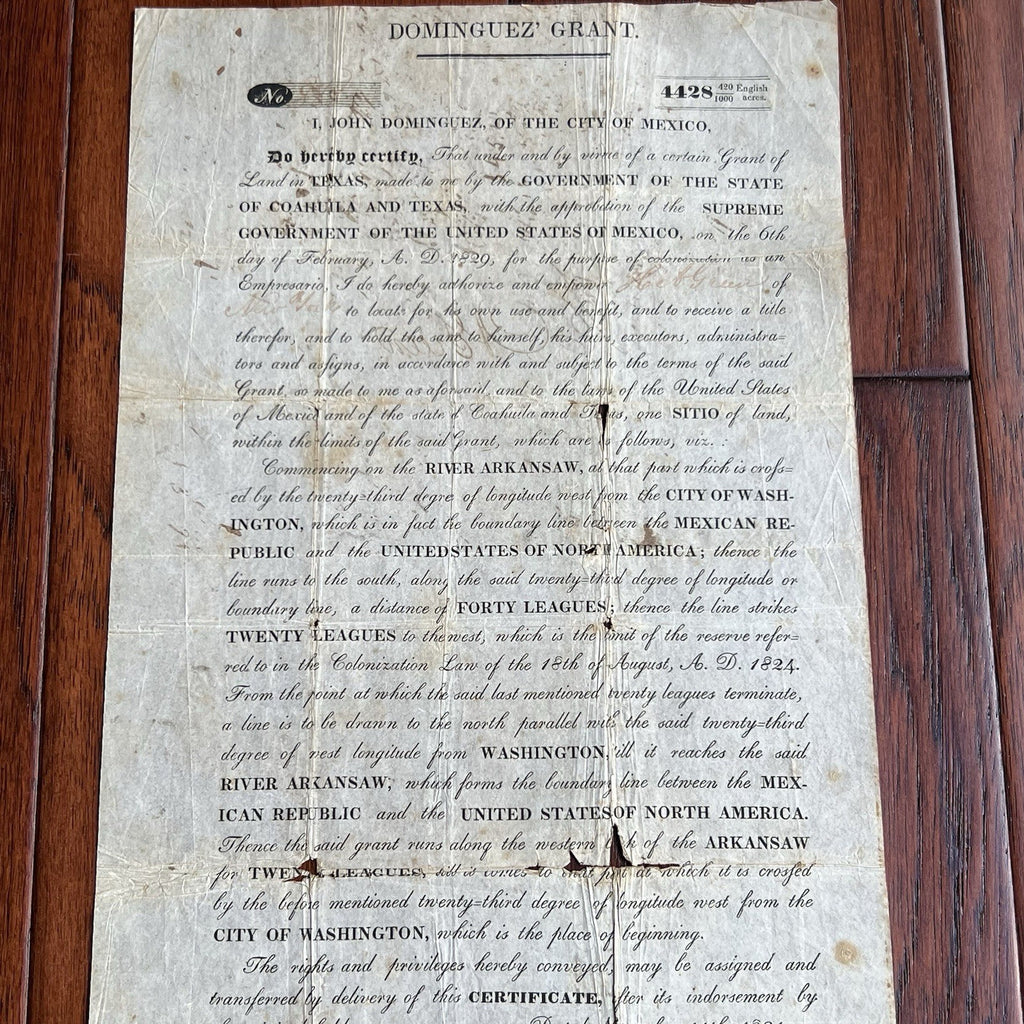 DOMINGUEZ' GRANT.
No.
4428 420/1000 English acres.
I, JOHN DOMINGUEZ, OF THE CITY OF MEXICO,
Do hereby certify, That under and by virtue of a certain Grant of
Land in TEXAS, made to me by the GOVERNMENT OF THE STATE
OF COAHUILA AND TEXAS, with the approbation of the SUPREME
GOVERNMENT OF THE UNITED STATES OF MEXICO, on the 6th
day of February, A. D. 1829, for the purpose of colonization as an
Empresario, I do hereby authorize and empower of
New York to locate for his own use and benefit, and to receive a title
therefor, and to hold the same to himself, his heirs, executors, administra=
tors and assigns, in accordance with and subject to the terms of the said
Grant, so made to me as aforsaid, and to the laws of the United States
of Mexico and of the state of Coahuila and Texas, one SITIO of land,
within the limits of the said Grant, which are as follows, viz. :
Commencing on the RIVER ARKANSAW, at that part which is cross=
ed by the twenty=third degree of longitude west from the CITY OF WASH-
INGTON, which is in fact the boundary line between the MEXICAN RE-
PUBLIC and the UNITED STATES OF NORTH AMERICA; thence the
line runs to the south, along the said twenty=third degree of longitude or
boundary line, a distance of FORTY LEAGUES; thence the line strikes
TWENTY LEAGUES to the west, which is the limit of the reserve refer=
red to in the Colonization Law of the 18th of August, A. D. 1824.
From the point at which the said last mentioned twenty leagues terminate,
a line is to be drawn to the north parallel with the said twenty=third
degree of west longitude from WASHINGTON, till it reaches the said
RIVER ARKANSAW, which forms the boundary line between the MEX-
ICAN REPUBLIC and the UNITED STATES OF NORTH AMERICA.
Thence the said grant runs along the western bank of the ARKANSAW
for TWENTY LEAGUES, till it comes to that part at which it is crossed
by the before mentioned twenty=third degree of longitude west from the
CITY OF WASHINGTON, which is the place of beginning.
The rights and privileges hereby conveyed, may be assigned and
transferred by delivery of this CERTIFICATE, after its indorsement by